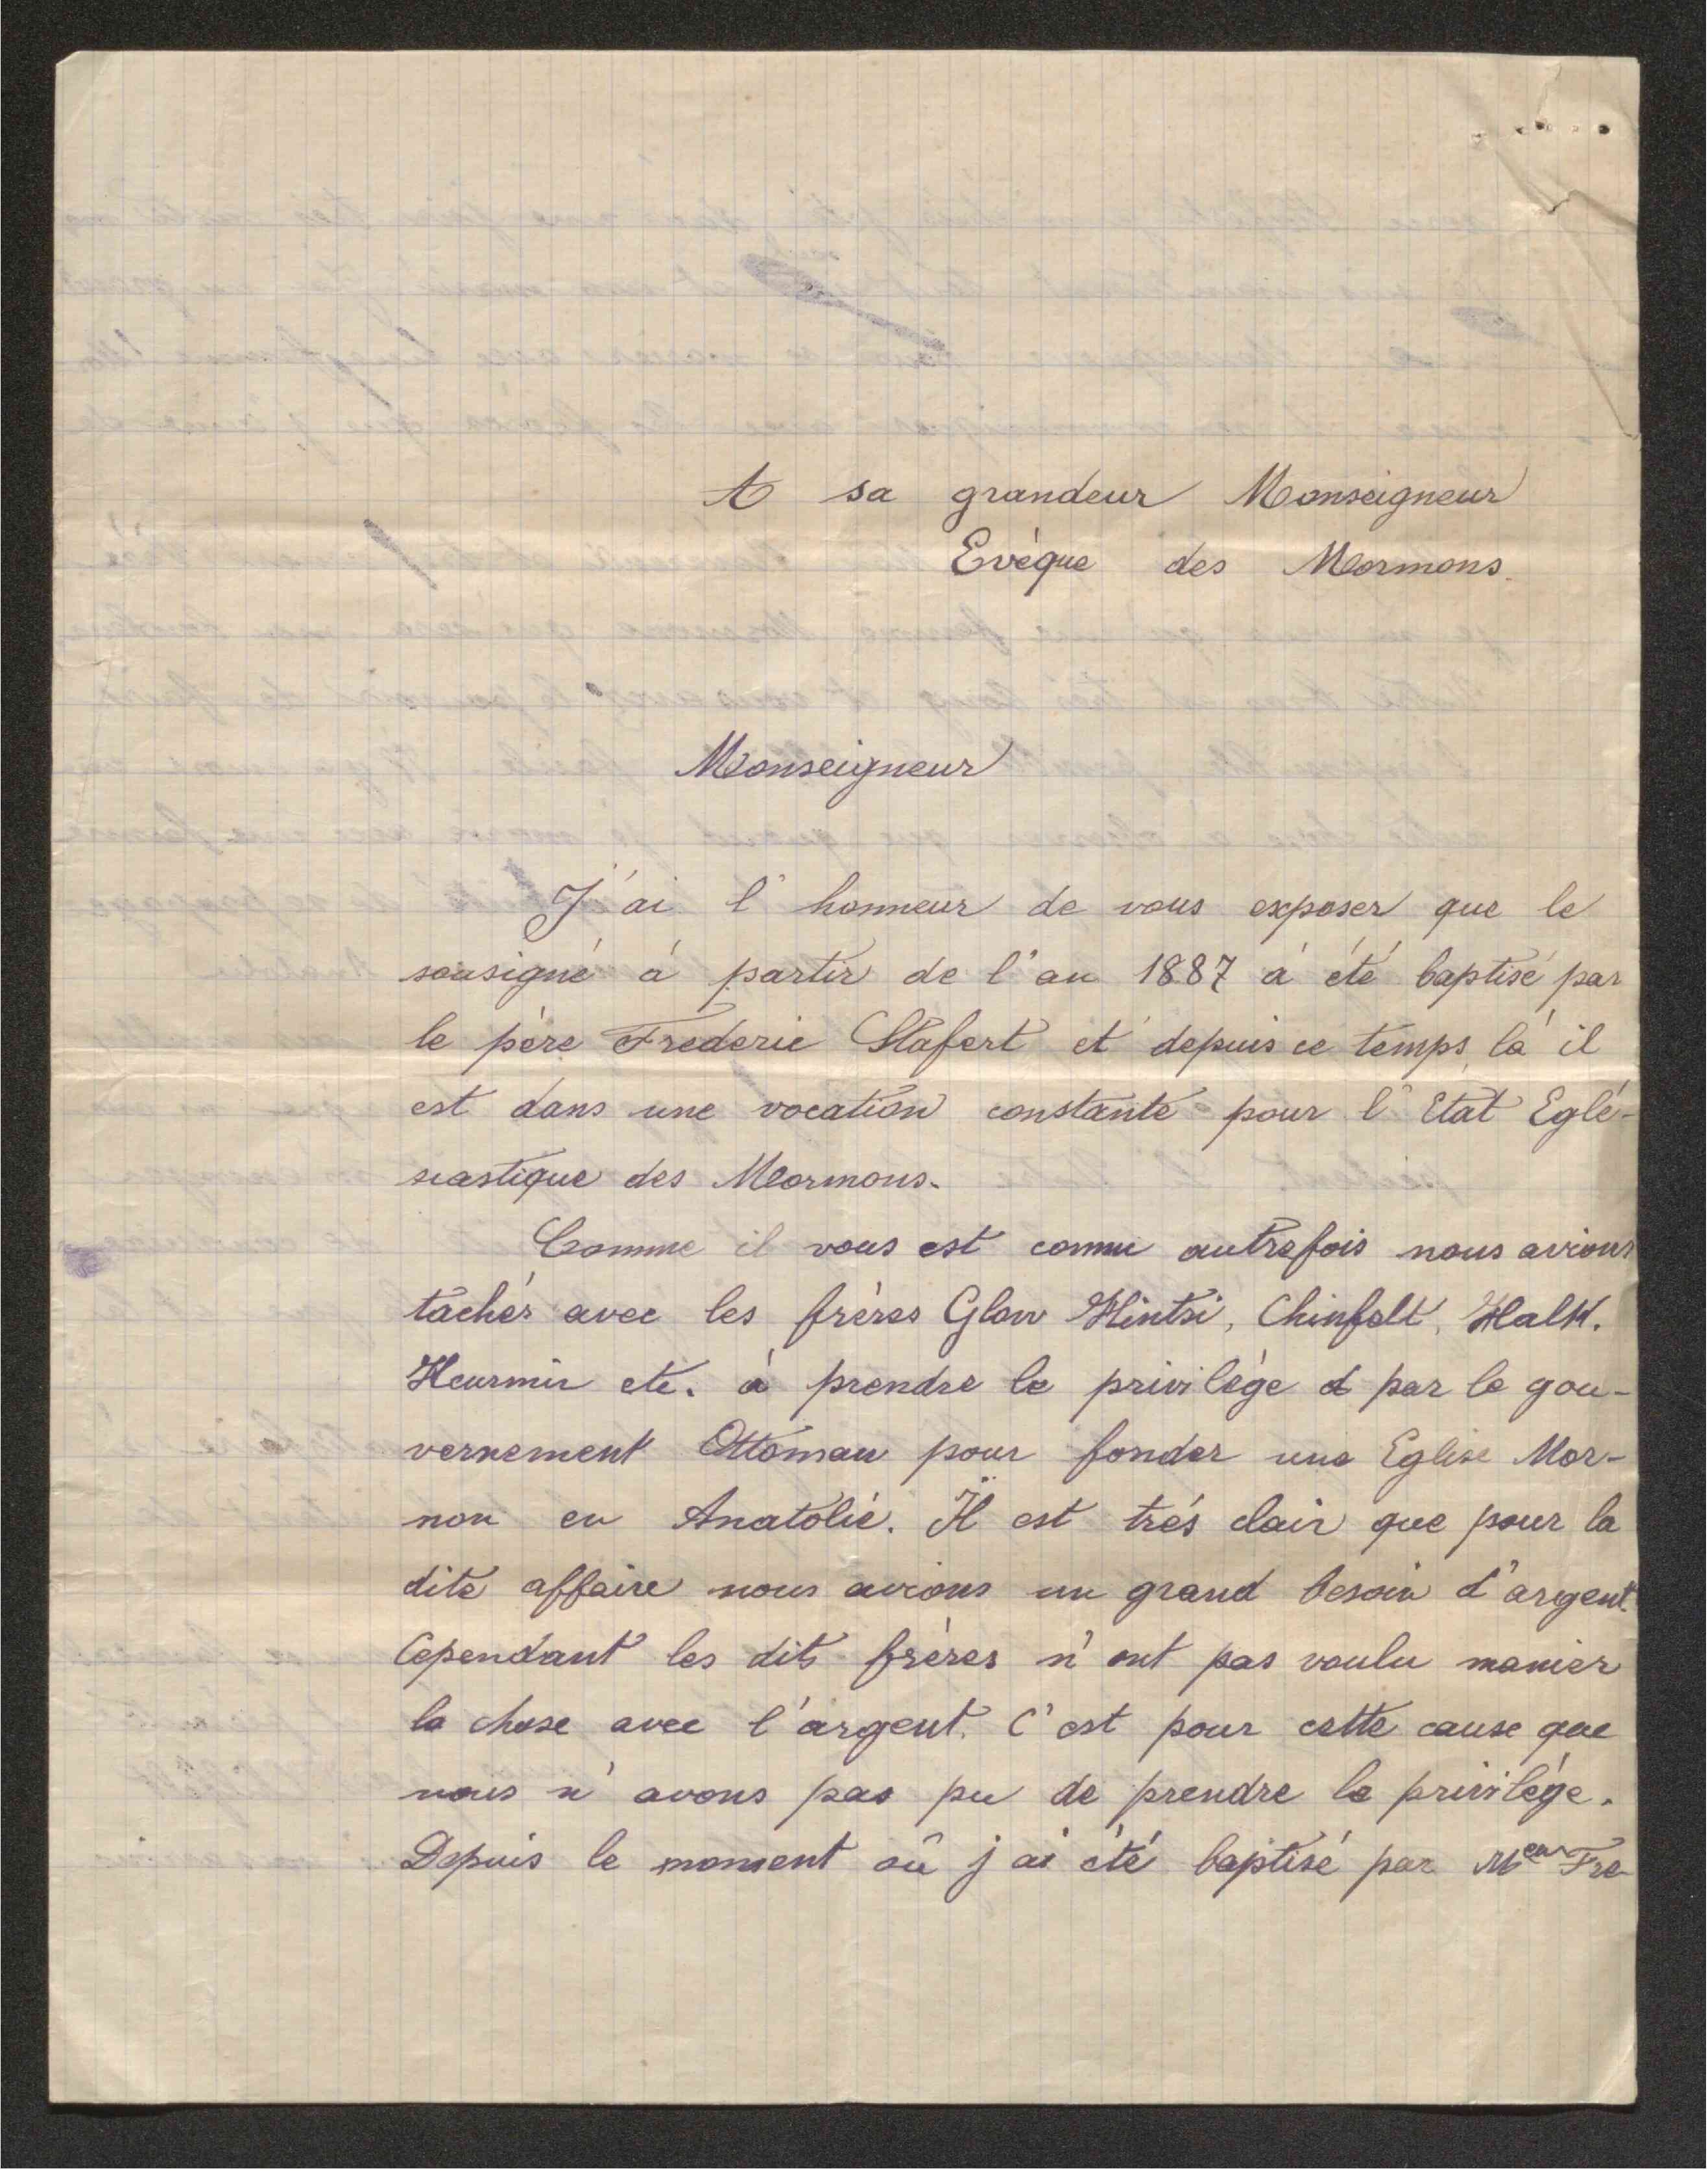 A sa grandeur Monseigneur
Evèque des Mormons.
Monseigneur
J'ai l'honneur de vous exposer que le
sousigné à partir de l'an 1887 à été baptisé par
le père Frederic Stafert et depuis ce temps là il
est dans une vocation constante pour l'Etat Eglé-
siastique des Mormons.
Comme il vous est connu autrefois nous avions
tachés avec les frères Glow Hintsi, Chinfelt, Halk.
Heurmin etc. à prendre le privilège d par le gou-
vernement Ottoman pour fonder une Eglise Mor-
non en Anatolié. Il est trés clair que pour la
dite affaire nous avions un grand besoin d'argent.
Cependant les dits frères n'ont pas voulu manier
la chose avec l'argent. C'est pour cette cause que
nous n'avons pas pu de prendre le privilège.
Depuis le moment où j'ai été baptisé par Meur Fre-